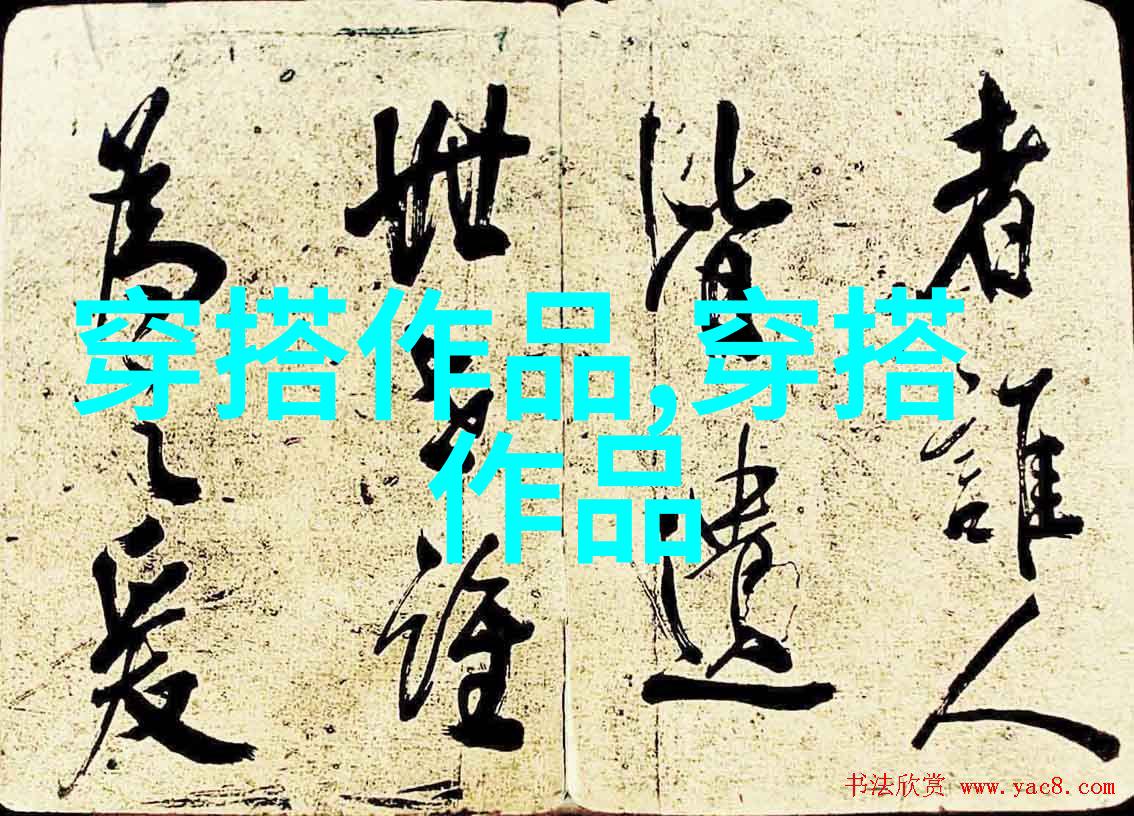 穿搭作品,穿搭
作品
者誰人
皆遺
世誰
為之爰
书法欣赏 www.yac8.com